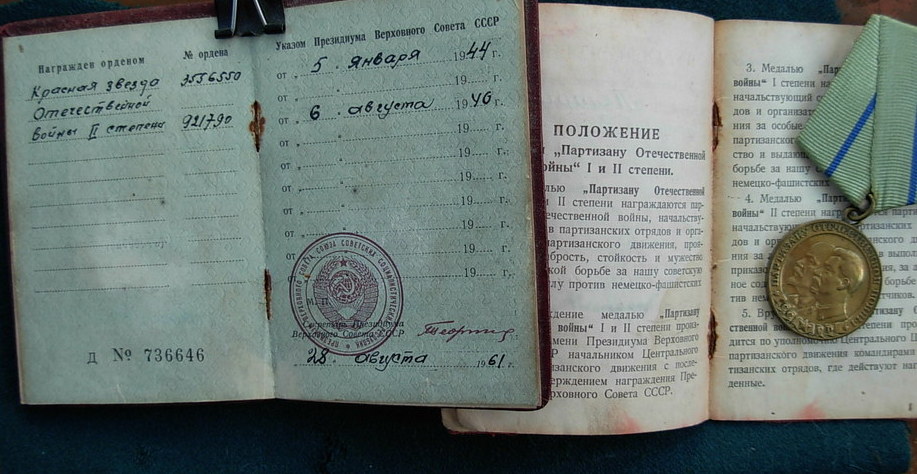 Награжден орденом
№ ордена
Красная звезда 3556550
Отечествейной
войны II степени 921790
Д № 736646
Указом Президиума Верховного Совета СССР
от „ 5 . января 1944 г.
от „ 6 . августа 1946 г.
от „ . 19 г.
от „ . 19 г.
от „ . 19 г.
от „ . 19 г.
от „ . 19 г.
от „ 19 г.
М. П.
Секретарь Президиума
Верховного Совета СССР
28 . августа 1961 г.
ПОЛОЖЕНИЕ
„Партизану Отечественной
войны“ I и II степени.
„Партизану Отечественной
и II степени награждаются пар-
течественной войны, начальству-
в партизанских отрядов и орга-
партизанского движения, проя-
брость, стойкость и мужество
кой борьбе за нашу советскую
лу против немецко-фашистских
ждение медалью „Партизану
войны“ I и II степени произ-
мени Президиума Верховного
Р начальником Центрального
изанского движения с после-
ерждением награждения Пре-
рховного Совета СССР.
3. Медалью „Парт
войны“ I степени наг
начальствующий с
дов и организат
ния за особые
партизанског
ство и выдаю
борьбе за нашу
немецко-фашистских
4. Медалью „Парт
войны“ II степени
начальствую
дов и орг
5. Вру
партизанского движения командирам
тизанских отрядов, где действуют наг
денные.